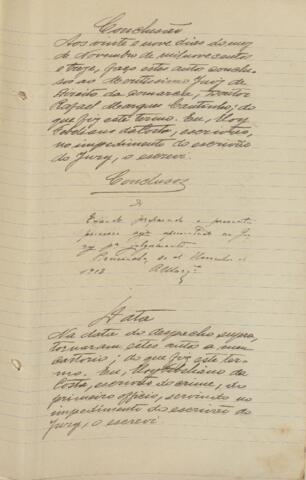 Conclusão
Aos vinte e nove dias do mez
de Novembro de mil nove centos
e treze, faço estes autos conclu-
sos ao Meritissimo Juiz de
Direito da comarca, Doutor
Rafael Marques Cantinho; do
que fiz este termo. Eu,
da Costa, escrivão,
no impedimento do escrivão
do Jury, o escrevi.
Conclusos
Estando preparado o presente
processo seja apresentado ao Ju-
ry pa julgamento.
de Novembro de
1913
Data
Na data do despacho supra,
tornaram estes autos a meu
cartorio; do que fiz este ter-
mo. Eu, da
Costa, escrivão do crime, do
primeiro officio, servindo no
impedimento do escrivão do
Jury, o escrevi.